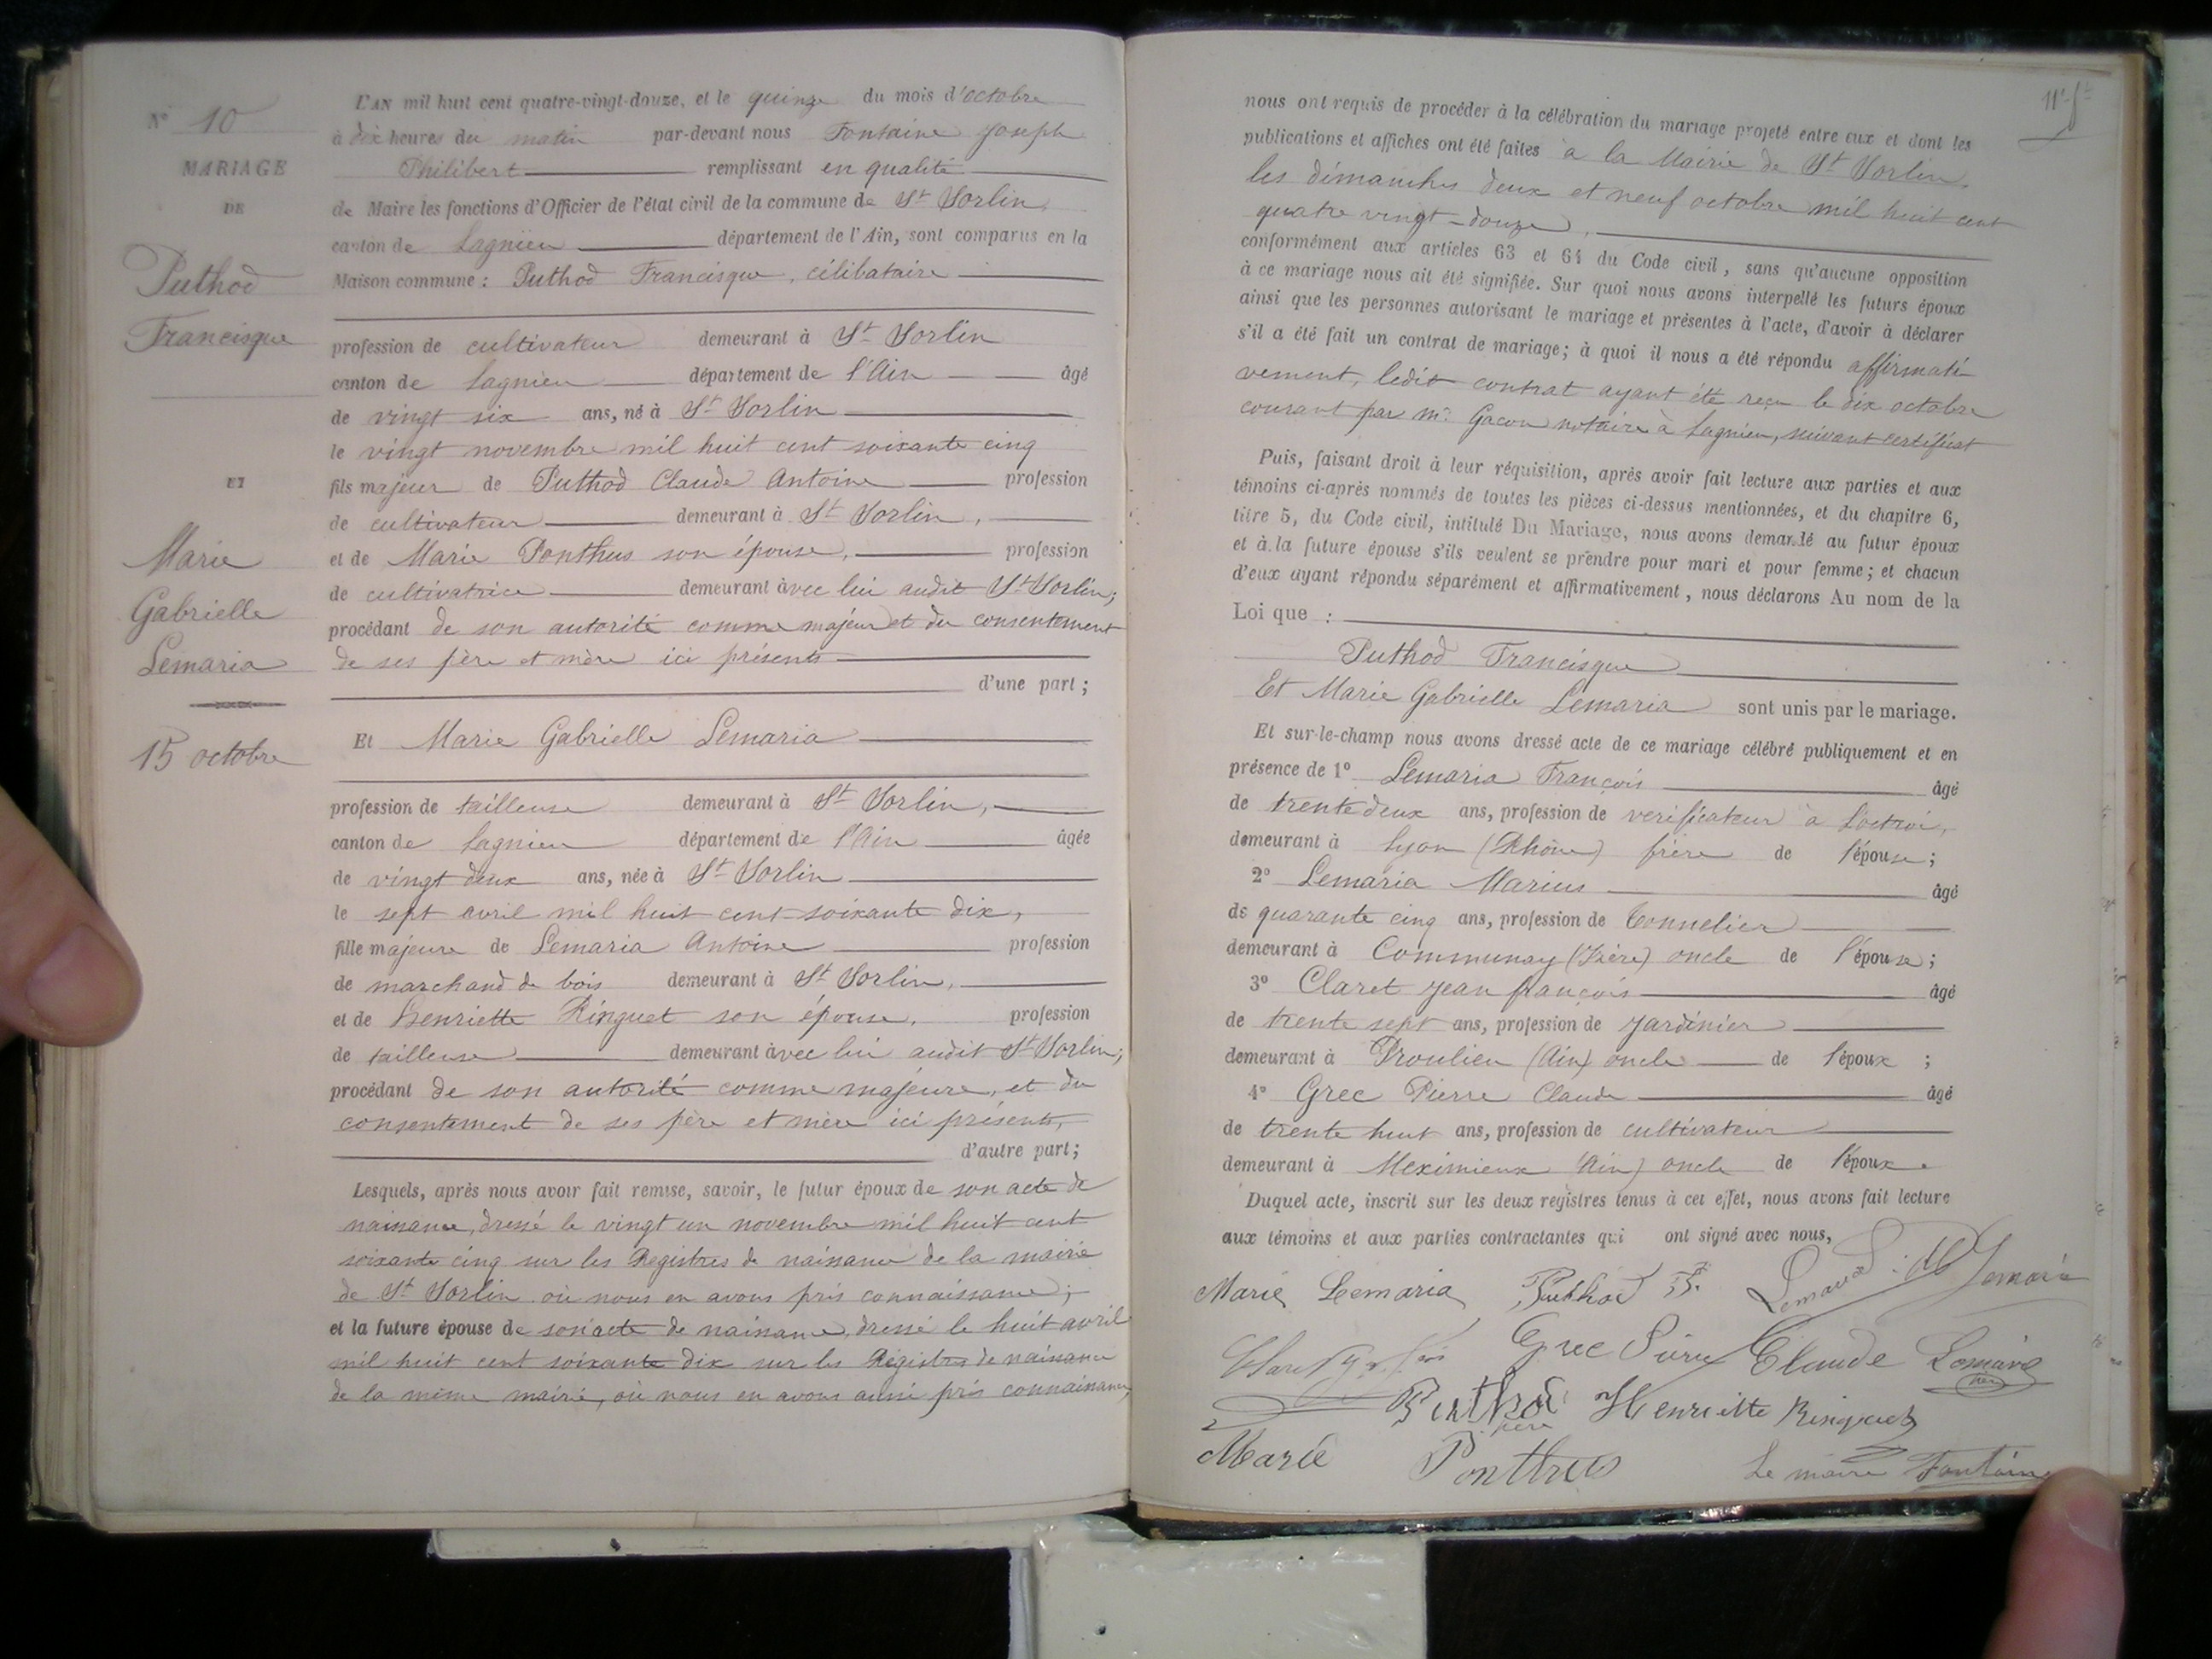 N° 10
MARIAGE
DE
Puthod
Francisque
ET
Marie
Gabrielle
Lemaria
15 octobre
L'AN mil huit cent quatre-vingt-douze, et le quinze du mois d'octobre
à dix heures du matin par-devant nous Fontaine Joseph
Philibert remplissant en qualité
de Maire les fonctions d'Officier de l'état civil de la commune de St Sorlin,
canton de Lagnieu département de l'Ain, sont comparus en la
Maison commune : Puthod Francisque, célibataire
profession de cultivateur demeurant à St Sorlin
canton de Lagnieu département de l'Ain âgé
de vingt six ans, né à St Sorlin
le vingt novembre mil huit cent soixante cinq
fils majeur de Puthod Claude Antoine profession
de cultivateur demeurant à St Sorlin,
et de Marie Ponthus son épouse, profession
de cultivatrice demeurant avec lui audit St Sorlin;
procédant de son autorité comme majeur et du consentement
de ses père et mère ici présents
d'une part ;
Et Marie Gabrielle Lemaria
profession de tailleuse demeurant à St Sorlin,
canton de Lagnieu département de l'Ain âgée
de vingt deux ans, née à St Sorlin
le sept avril mil huit cent soixante dix,
fille majeure de Lemaria Antoine profession
de marchand de bois demeurant à St Sorlin,
et de Henriette Ringuet son épouse, profession
de tailleuse demeurant avec lui audit St Sorlin;
procédant de son autorité comme majeure, et du
consentement de ses père et mère ici présents,
d'autre part ;
Lesquels, après nous avoir fait remise, savoir, le futur époux de son acte de
naissance, dressé le vingt un novembre mil huit cent
soixante cinq sur les Registres de naissance de la mairie
de St Sorlin où nous en avons pris connaissance;
et la future épouse de son acte de naissance, dressé le huit avril
mil huit cent soixante dix sur les Régistres de naissance
de la même mairie, où nous en avons aussi pris connaissance,
11e ft
nous ont requis de procéder à la célébration du mariage projeté entre eux et dont les
publications et affiches ont été faites à la Mairie de St Sorlin,
les dimanches deux et neuf octobre mil huit cent
quatre vingt-douze,
conformément aux articles 63 et 64 du Code civil, sans qu'aucune opposition
à ce mariage nous ait été signifiée. Sur quoi nous avons interpellé les futurs époux
ainsi que les personnes autorisant le mariage et présentes à l'acte, d'avoir à déclarer
s'il a été fait un contrat de mariage; à quoi il nous a été répondu affirmati
vement, ledit contrat ayant été reçu le dix octobre
courant par me Gacon notaire à Lagnieu, suivant certificat
Puis, faisant droit à leur réquisition, après avoir fait lecture aux parties et aux
témoins ci-après nommés de toutes les pièces ci-dessus mentionnées, et du chapitre 6,
titre 5, du Code civil, intitulé Du Mariage, nous avons demandé au futur époux
et à la future épouse s'ils veulent se prendre pour mari et pour femme; et chacun
d'eux ayant répondu séparément et affirmativement, nous déclarons Au nom de la
Loi que :
Puthod Francisque
Et Marie Gabrielle Lemaria sont unis par le mariage.
Et sur-le-champ nous avons dressé acte de ce mariage célébré publiquement et en
présence de 1° Lemaria François âgé
de trente deux ans, profession de verificateur à l'octroi,
demeurant à Lyon (Rhône) frère de l'épouse;
2° Lemaria Marius âgé
de quarante cinq ans, profession de tonnelier
demeurant à Communay (Isère) oncle de l'épouse;
3° Claret Jean françois âgé
de trente sept ans, profession de jardinier
demeurant à Proulieu (Ain) oncle de l'époux ;
4° Grec Pierre Claude âgé
de trente huit ans, profession de cultivateur
demeurant à Meximieux (Ain) oncle de l'époux.
Duquel acte, inscrit sur les deux registres tenus à cet effet, nous avons fait lecture
aux témoins et aux parties contractantes qui ont signé avec nous,
Marie Lemaria Puthod F. Lemaria M Lemaria
Claret Grec Pierre Claude Lemaria
Puthod père Henriette Ringuet
Marie Ponthus Le maire Fontaine